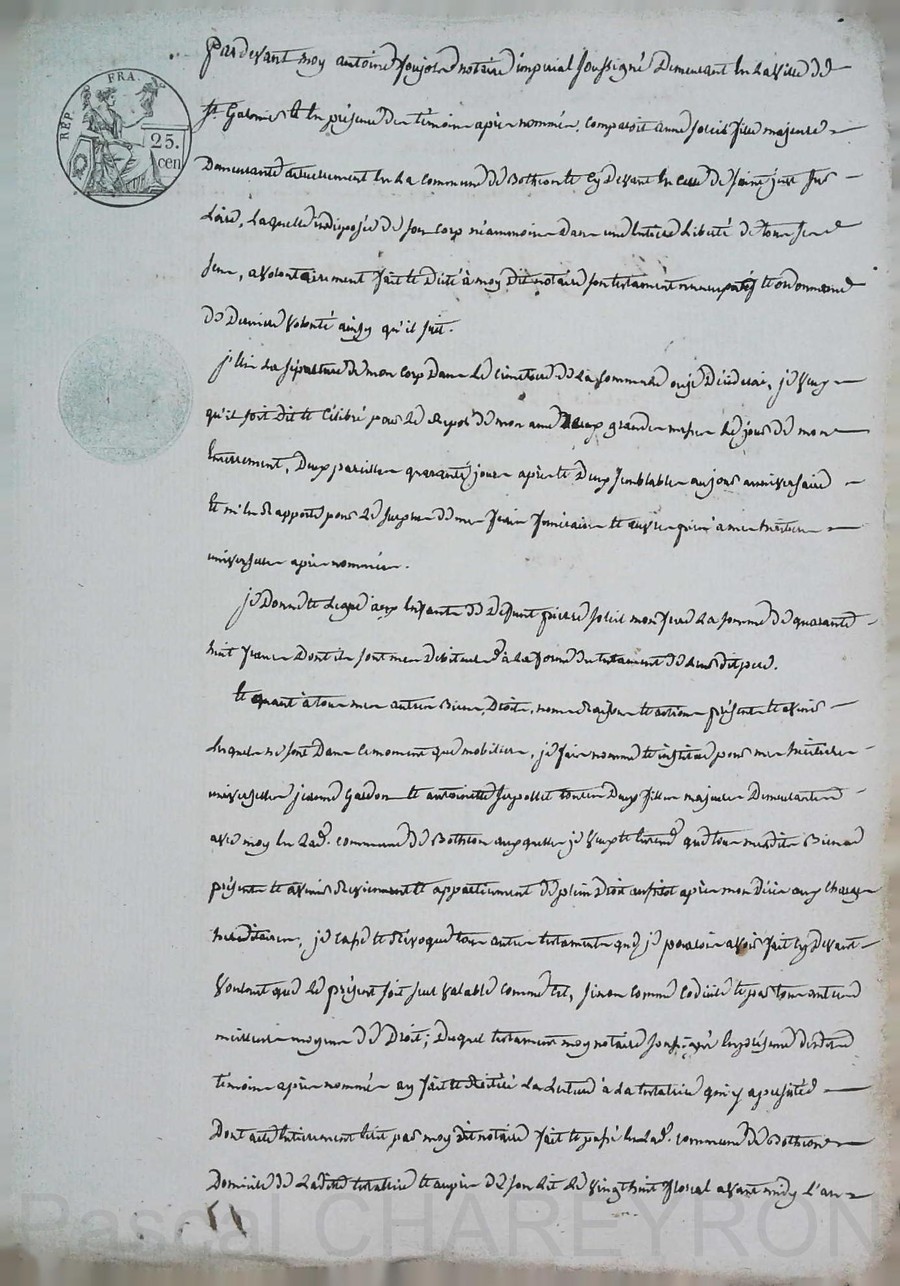 FRA.
RÉP.
25.
cen
Pardevant moy antoine notaire impérial soussigné Demeurant en La Ville de
St. Galmier et En présence des témoins après nommés, comparoit anne soleil fille majeure
Demeurante actuellement En La Commune de Bothéon et Cy Devant En Celle de saint just sur
Loire, Laquelle indisposée de son Corp néammoins Dans une Entiere Liberté de tous ses
sens, a volontairement fait et Dicté à moy Dit notaire son testament nuncupatif et ordonnance
de Derniere Volonté ainsy qu'il suit.
j'élis La sépulture de mon Corp Dans Le Cimetiere de La Commune où je Décéderai, je Veux
qu'il soit Dit et Célébré pour Le Repos de mon ame Deux grandes messes Le jour de mon
Enterrement, Deux pareilles quarante jours après et Deux semblables au jour anniversaire
et m'En Rapporte pour Le surplus de mes frais funéraires et œuvres pies à mes héritieres
universelles après nommées.
je Donne et Legue aux Enfants de Defunt pierre soleil mon frere La somme de quarante
huit francs Dont ils sont mes Debiteurs à La forme du testament de Leur dit pere.
Et quant à tous mes autres Biens, Droits, noms Raisons et actions présents et avenir
Lesquels ne sont Dans Ce moment que mobiliers, je fais nomme et institue pour mes héritieres
universelles jeanne Gardon et antoinette toutes Deux filles majeures Demeurantes
avec moy En Lad. commune de Bothéon auxquelles je Veux et Entend que tous mesdits Biens
présents et avenir Reviennent et appartiennent de plein Droit aussitot après mon Décès aux charges
héréditaires, je Casse et Révoque tous autres testaments que je pourrois avoir fait Cy Devant
Voulant que Le présent soit seul valable comme tel, sinon comme Codicile et par tous autres
meilleurs moyens de Droit; Duquel testament moy notaire soussigné En présence desdits
témoins après nommés ay fait et Réitéré La Lecture à La testatrice qui y a persisté
Dont acte Entierement Ecrit par moy Dit notaire fait et passé En Lad. commune de Bothéon
Domicile de Ladite testatrice et aupres de son Lit Le vingt huit floreal avant midy L'an
Pascal CHAREYRON